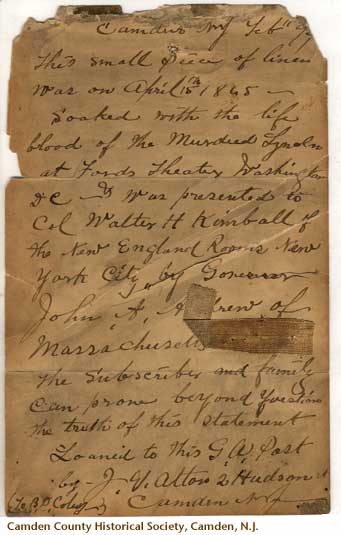 Camden NJ Feb
This small piece of linen
was on April 15th 1865 –
Soaked with the life
blood of the Murdered Lincoln
at Fords Theater Washington
DC – was presented to
Col Walter H Kimball of
the New England Rooms New
York City, by Governor
John A, Andrew of
Massachusetts
the Subscriber and family
can prove beyond question
the truth of this statement
Loaned to this G A Post
by – J. V. Alton 2 Hudson st
Camden NJ
Camden County Historical Society, Camden, N.J.